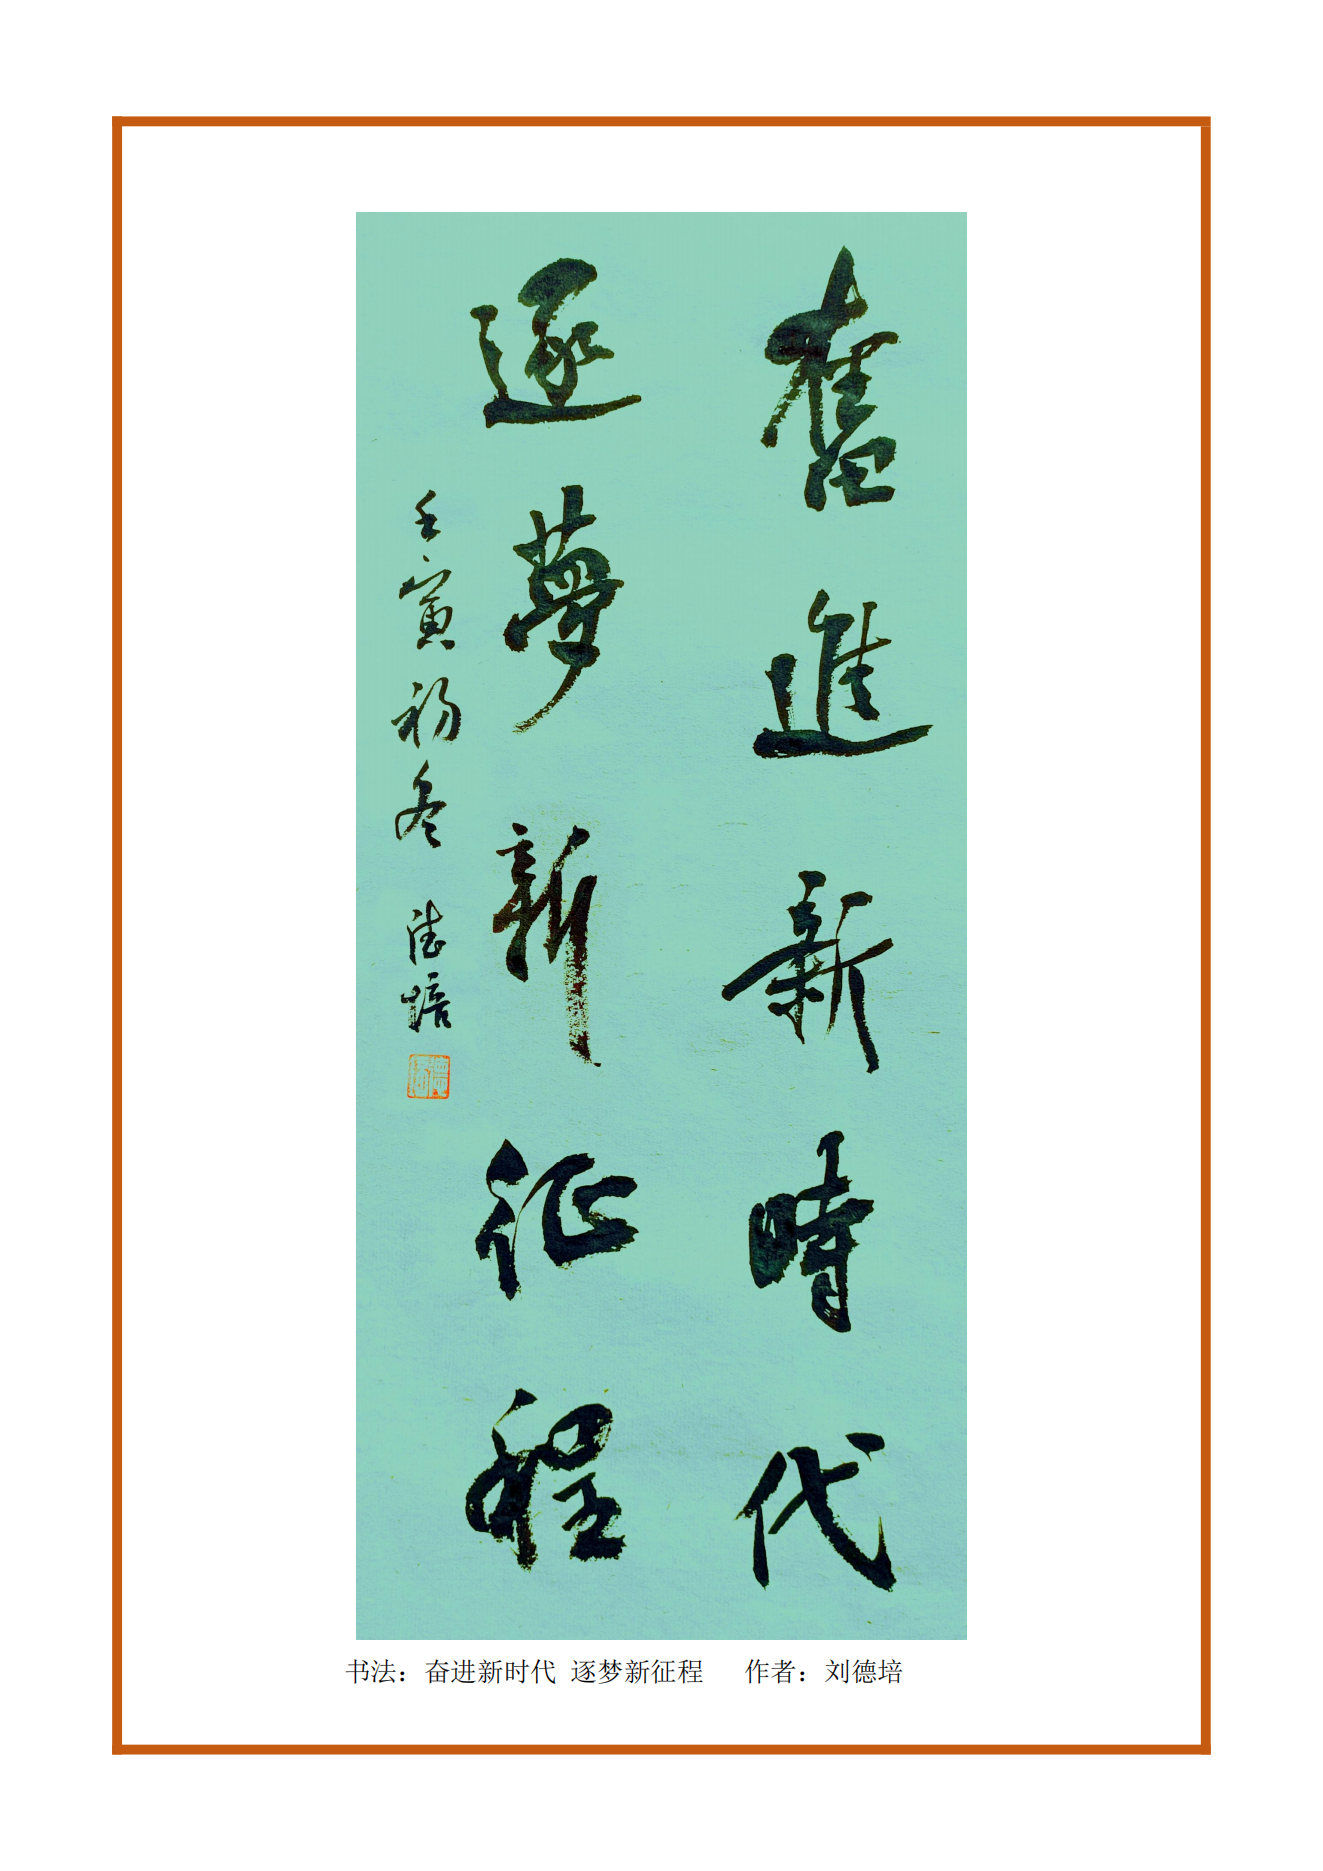 奮進新時代
逐夢新征程
壬寅初冬 德培
德培
书法：奋进新时代 逐梦新征程 作者：刘德培